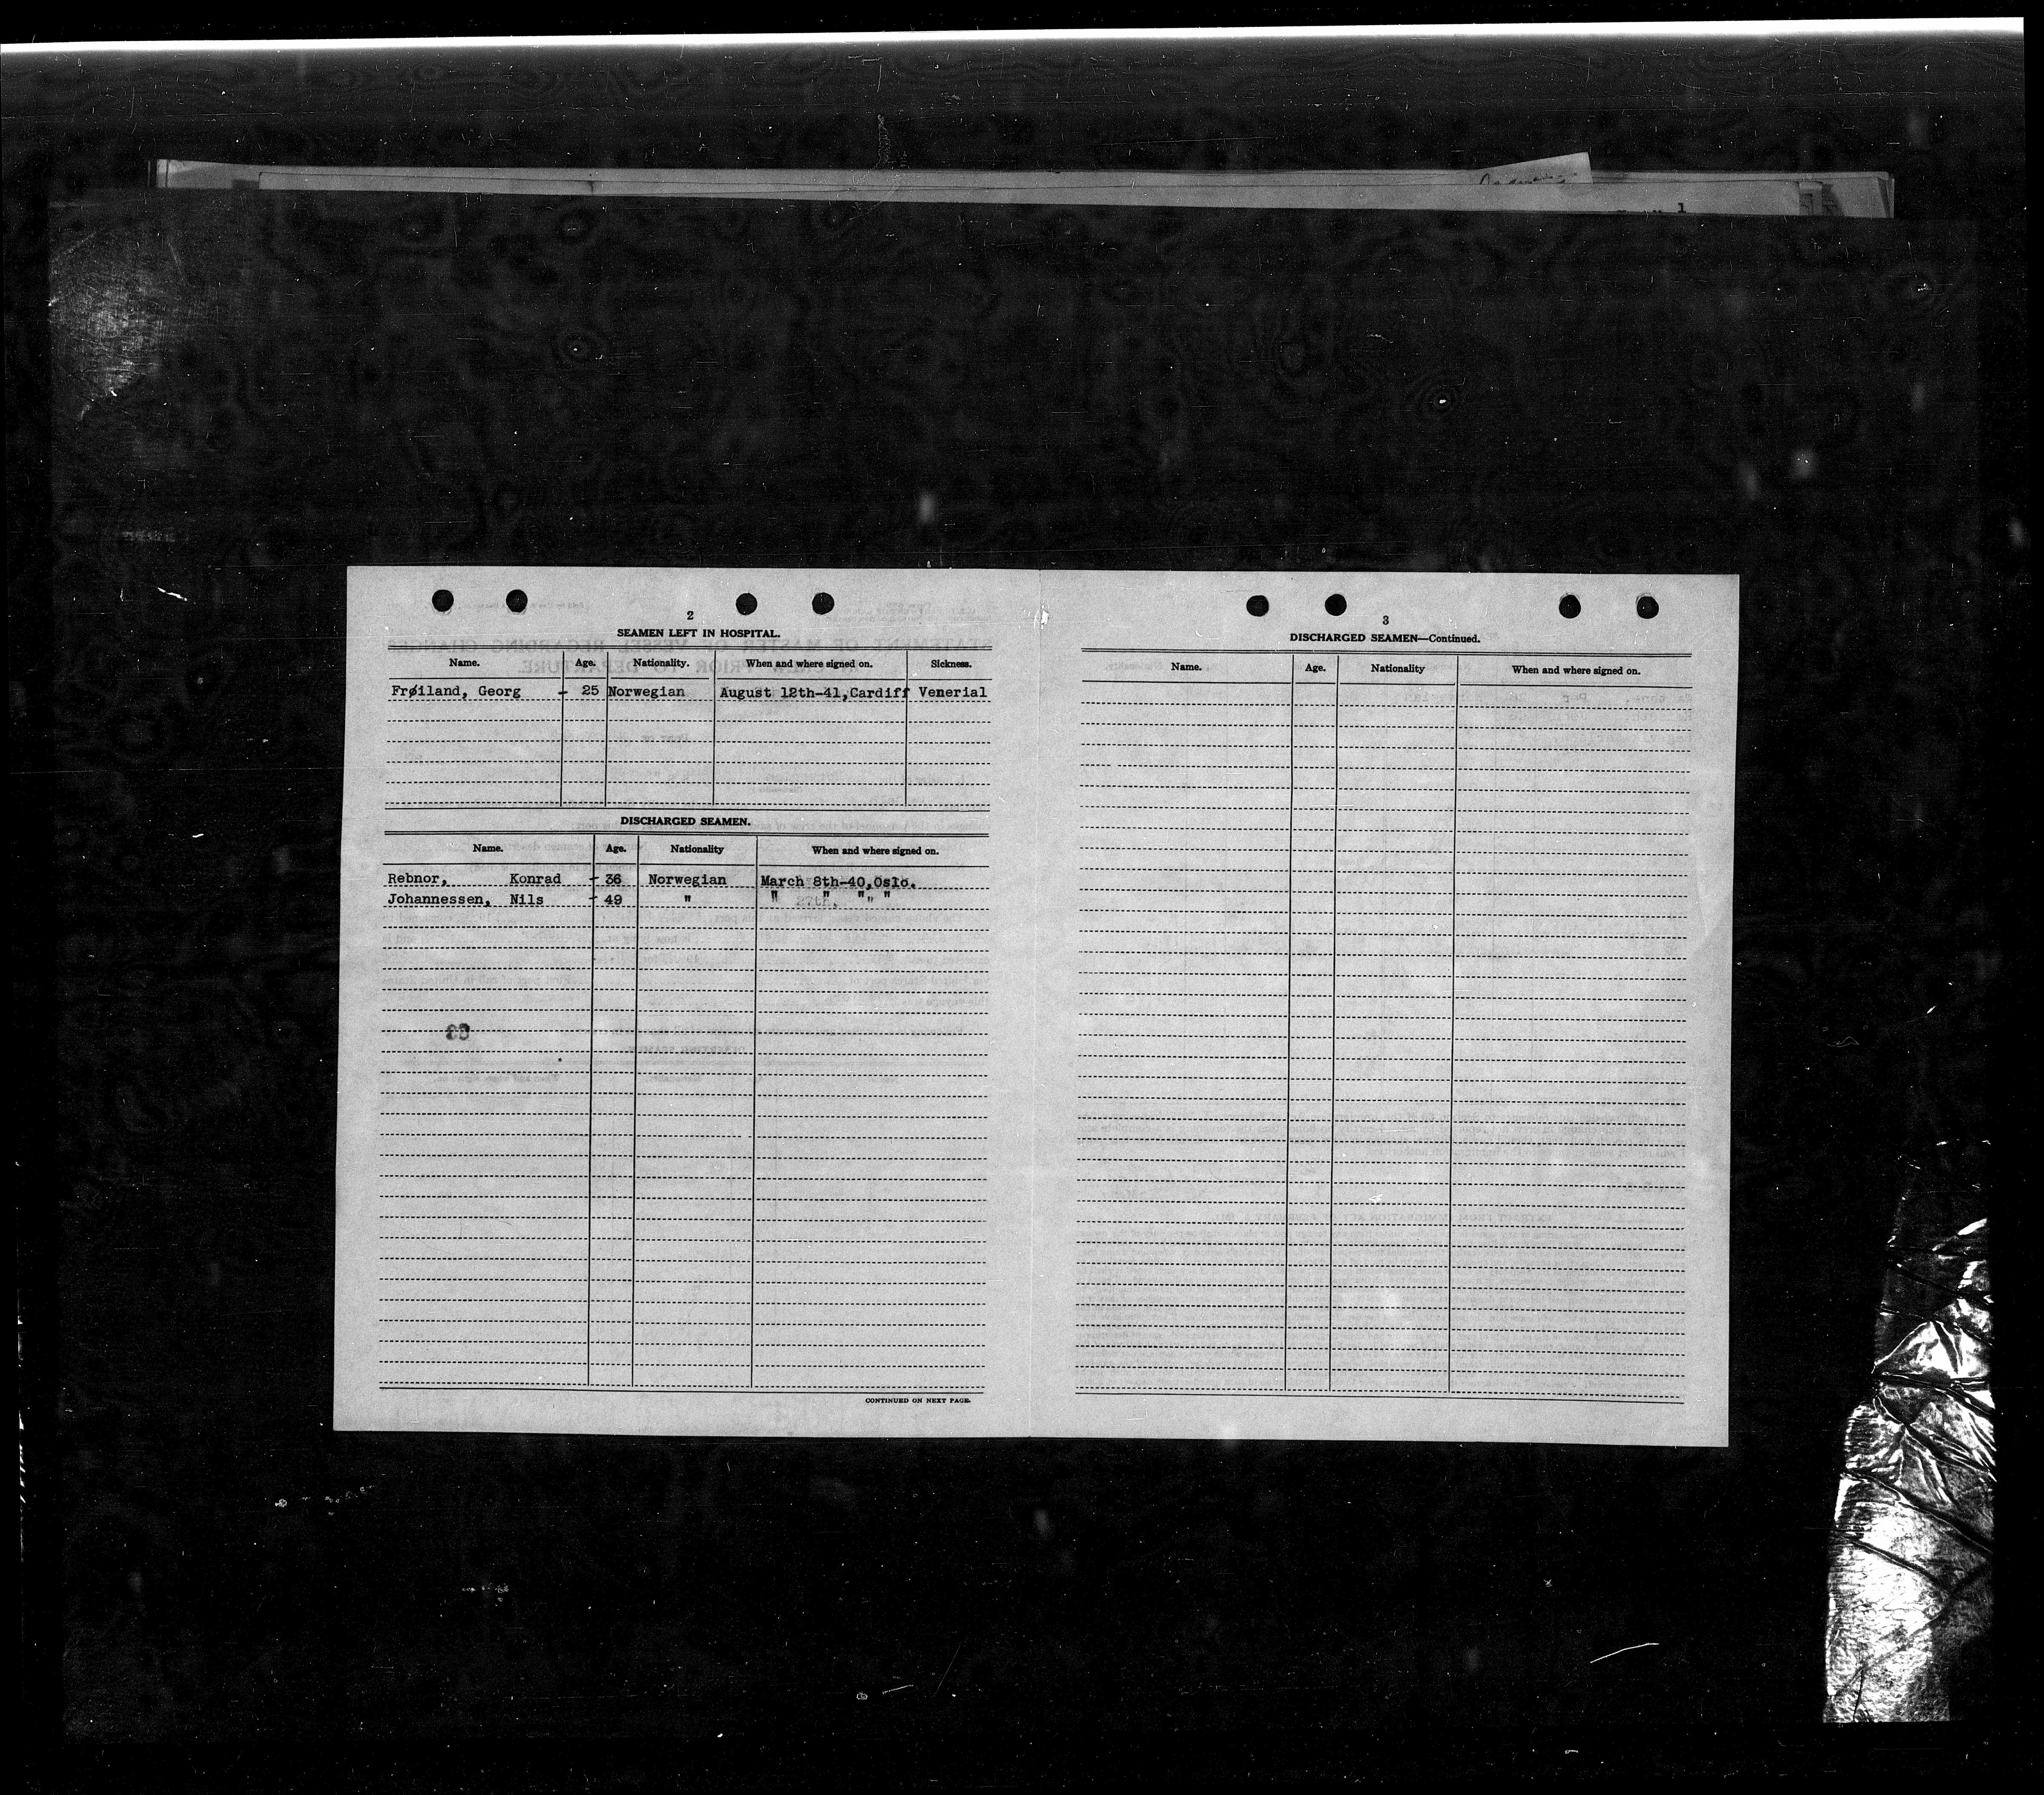 2
SEAMEN LEFT IN HOSPITAL.
Name. Age. Nationality. When and where signed on. Sickness.
Frøiland, Georg - 25 Norwegian August 12th-41,Cardiff Venerial
DISCHARGED SEAMEN.
Name. Age. Nationality When and where signed on.
Rebnor, Konrad - 36 Norwegian March 8th-40,Oslo.
Johannessen, Nils - 49 " " " " " "
CONTINUED ON NEXT PAGE.
3
DISCHARGED SEAMEN—Continued.
Name. Age. Nationality When and where signed on.